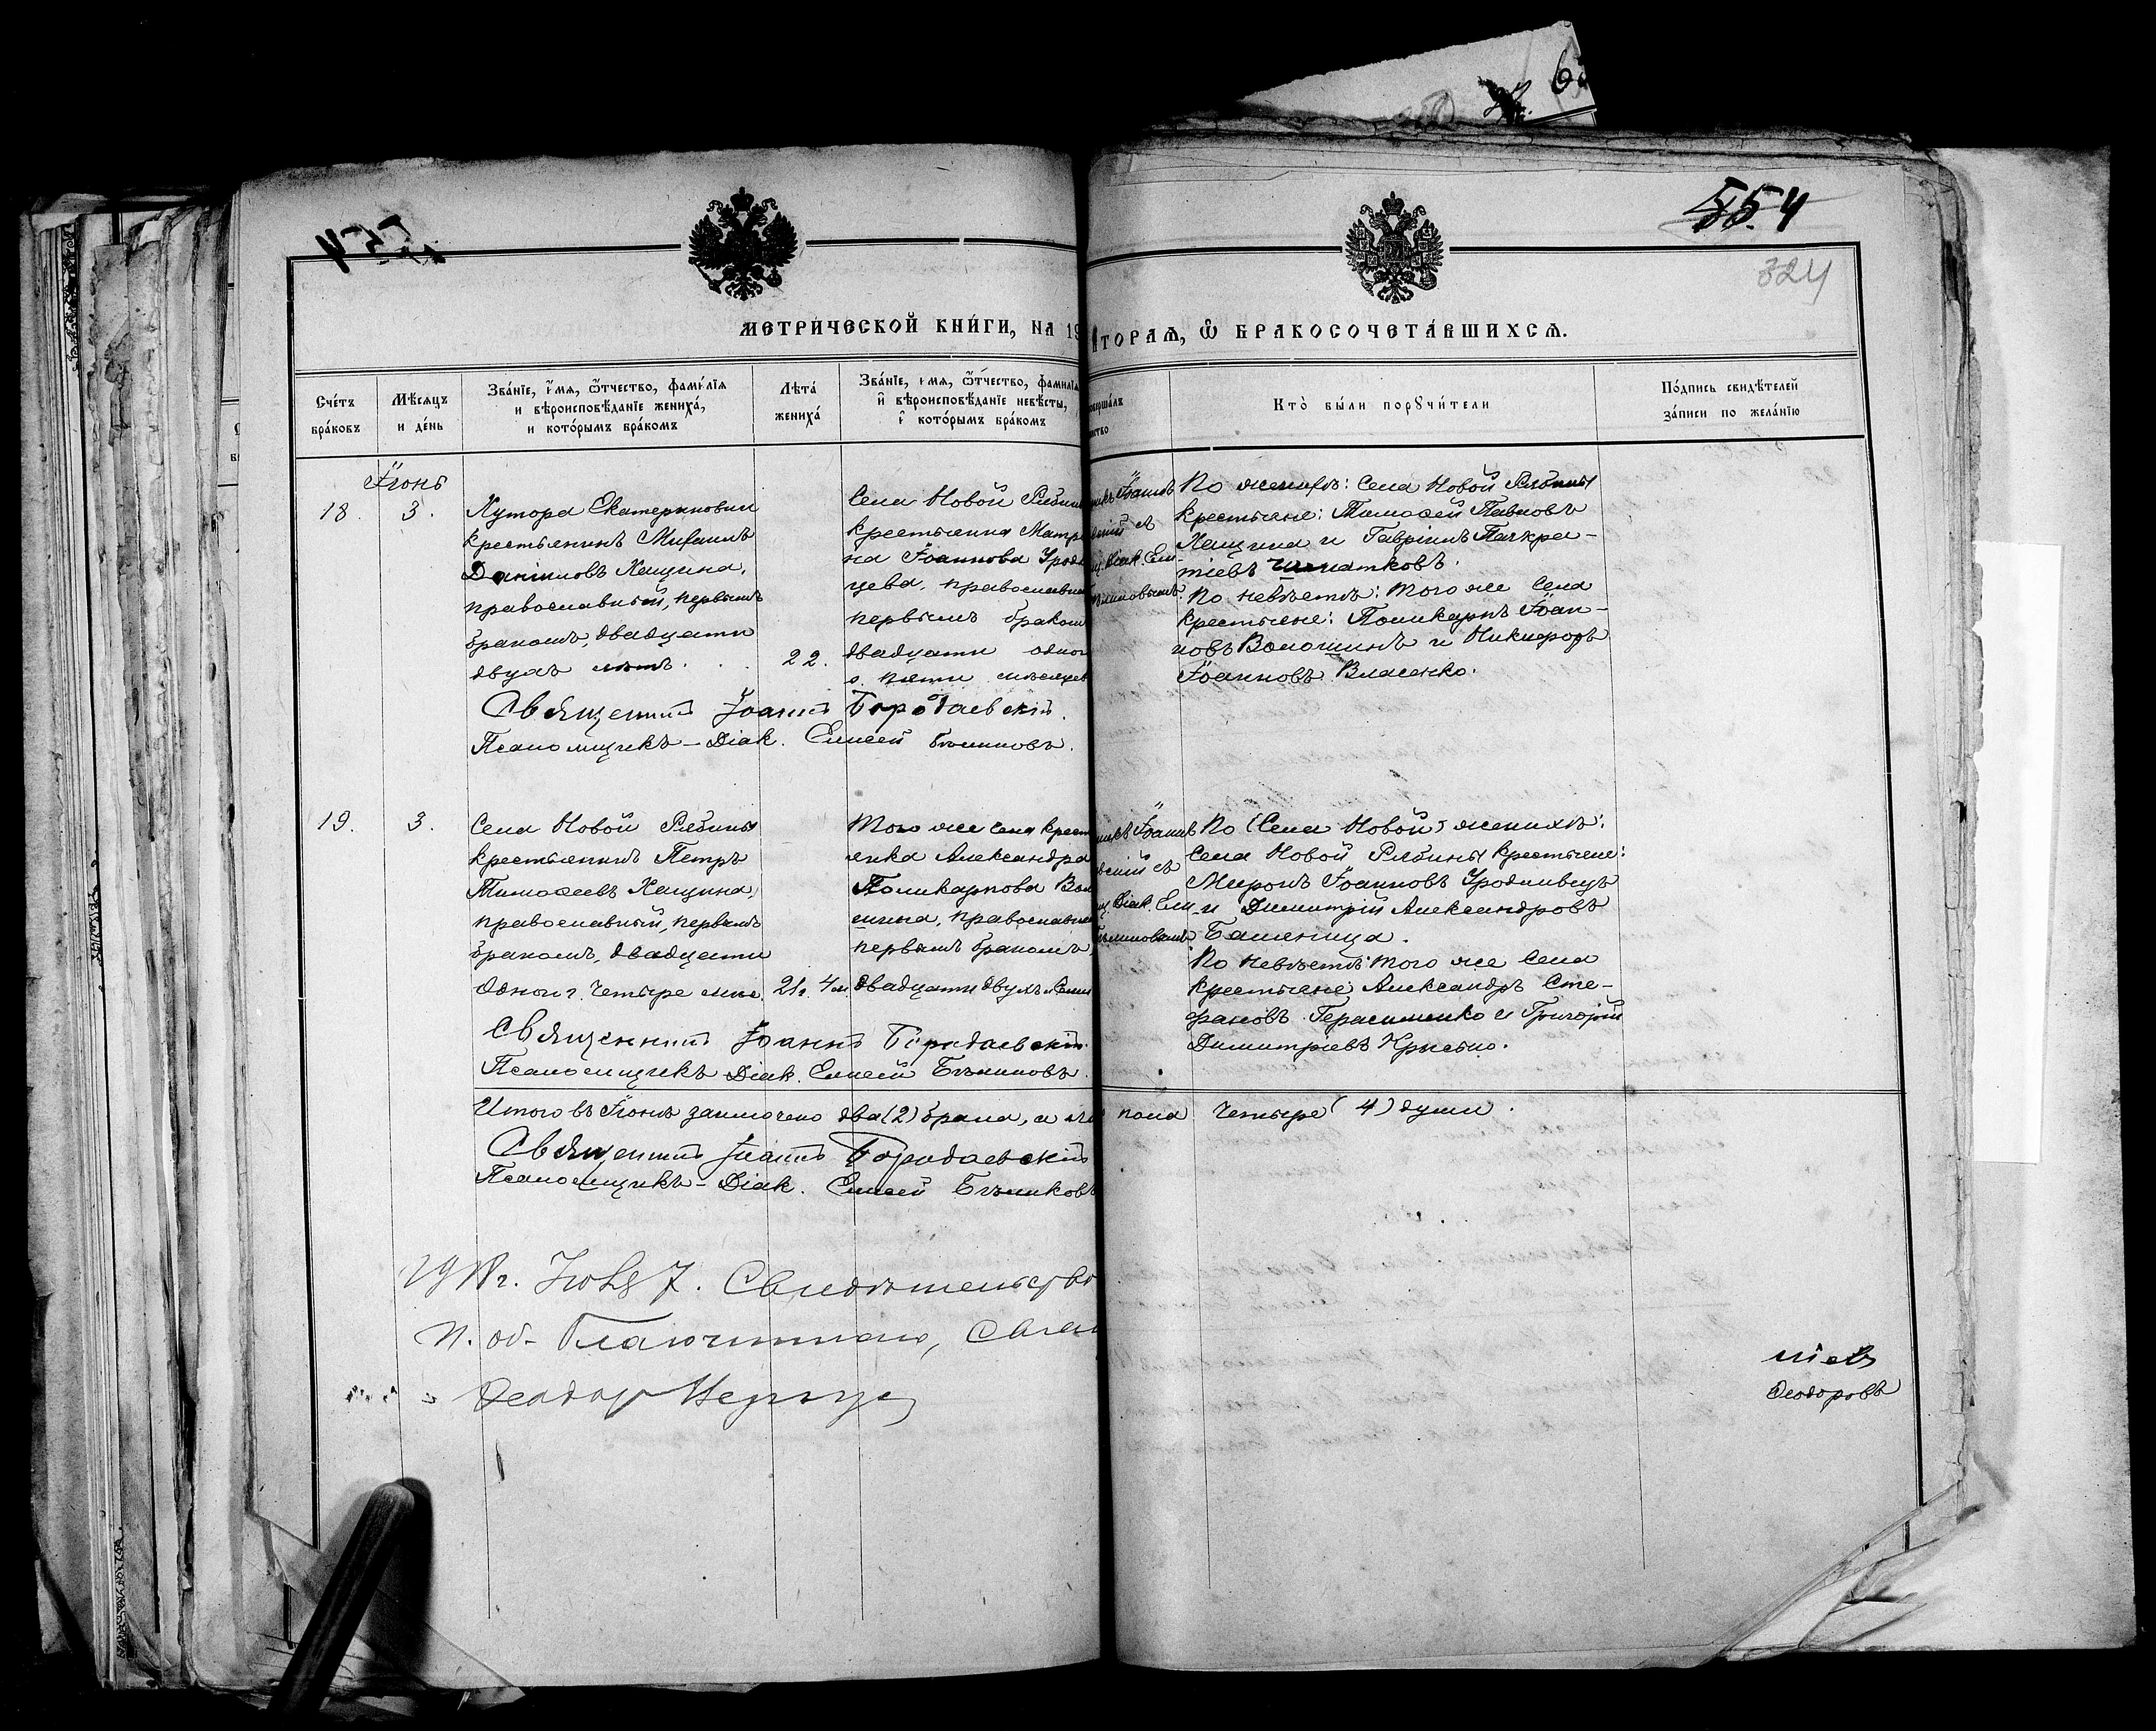 554
324
МЕТРИЧЕСКОЙ КНИГИ, НА 19
ТОРАѦ, Ѿ БРАКОСОЧЕТАВШИХСѦ.
Счетъ браковъ
Мѣсяцъ и день
Званіе, имя, ѿтчество, фамилія
и вѣроисповѣданіе жениха,
и которымъ бракомъ
Лѣта
жениха
Званіе, имя, ѿтчество, фамилія
и вѣроисповѣданіе невѣсты,
и которымъ бракомъ
совершалъ
Кто были поручители
Подпись свидѣтелей
записи по желанію
Іюнь
18.
3.
Хутора Екатериновки
крестьянинъ Михаилъ
Даніиловъ Клещина,
православный, первымъ
бракомъ, двадцати
двухъ лѣтъ.
22.
Села Новой Рябины
крестьянка Матро
на Іоаннова Уродли
цева, православн
первымъ бракомъ
двадцати одного
пяти мѣсяцев
Іоаннъ
скій съ
Діак. Ели
Бѣликовымъ
По женихѣ: Села Новой Рябины
крестьяне: Тимоѳей Павловъ
Клещина и Гавріилъ Панкра-
тіевъ Шматковъ.
По невѣстѣ: того же села
крестьяне: Поликарпъ Іоан-
новъ Волошинъ и Никифоръ
Іоанновъ Власенко.
Священникъ Іоаннъ Бородаевскій.
Псаломщикъ - Діак. Елисей Бѣликовъ.
19.
3.
Села Новой Рябины
крестьянинъ Петръ
Тимоѳеевъ Клещина,
православный, первымъ
бракомъ, двадцати
одного г. четыре мѣс.
21г. 4м
Того же села крест
янка Александра
Поликарпова Вол
шина, православн
первымъ бракомъ,
двадцати двухъ лѣтъ
Іоаннъ
вскій съ
Діак. Ели
Бѣликовымъ
По (Села Новой) женихѣ:
Села Новой Рябины крестьяне:
Миронъ Іоанновъ Уродливецъ
и Димитрій Александровъ
По невѣстѣ: того же села
крестьяне: Александръ Сте-
фановъ Герасименко и Григорій
Димитріевъ
Священникъ Іоаннъ Бородаевскій.
Псаломщикъ Діак. Елисей Бѣликовъ.
Итого въ Іюнѣ заключено два (2) брака, а
пола четыре (4) души.
Священникъ Іоаннъ Бородаевскій
Псаломщикъ - Діак. Елисей Бѣликовъ
7. Свидѣтельство
Благочиннаго, Свящ
Ѳеодоръ
Ѳеодоровъ